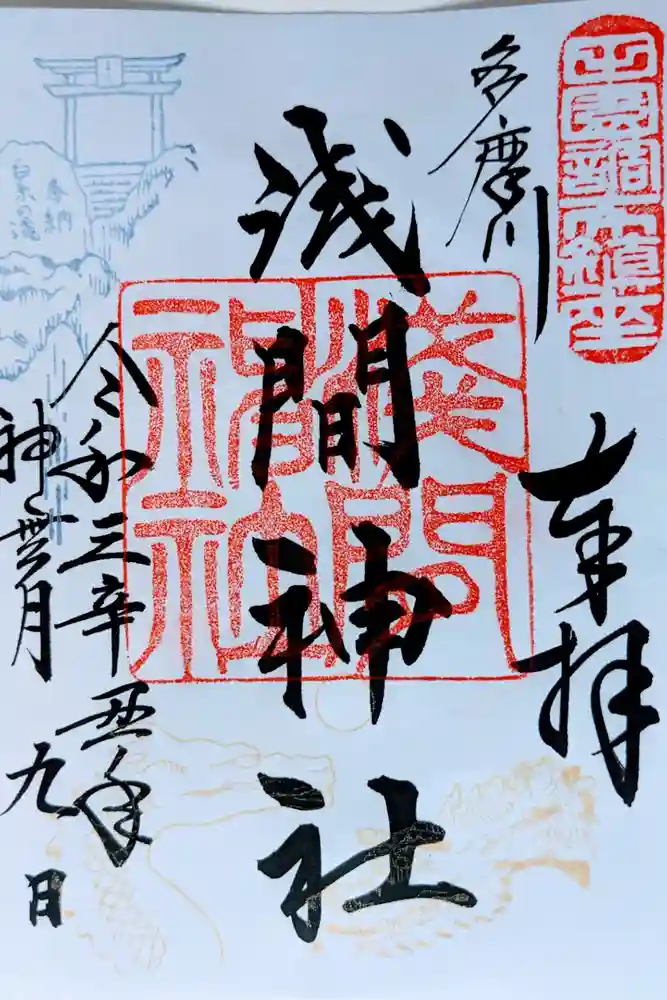 田園調布鎮座
奉拝
多摩川
浅間神社
淺間
神社
令和三辛丑年
神無月九日
奉納
白糸の滝